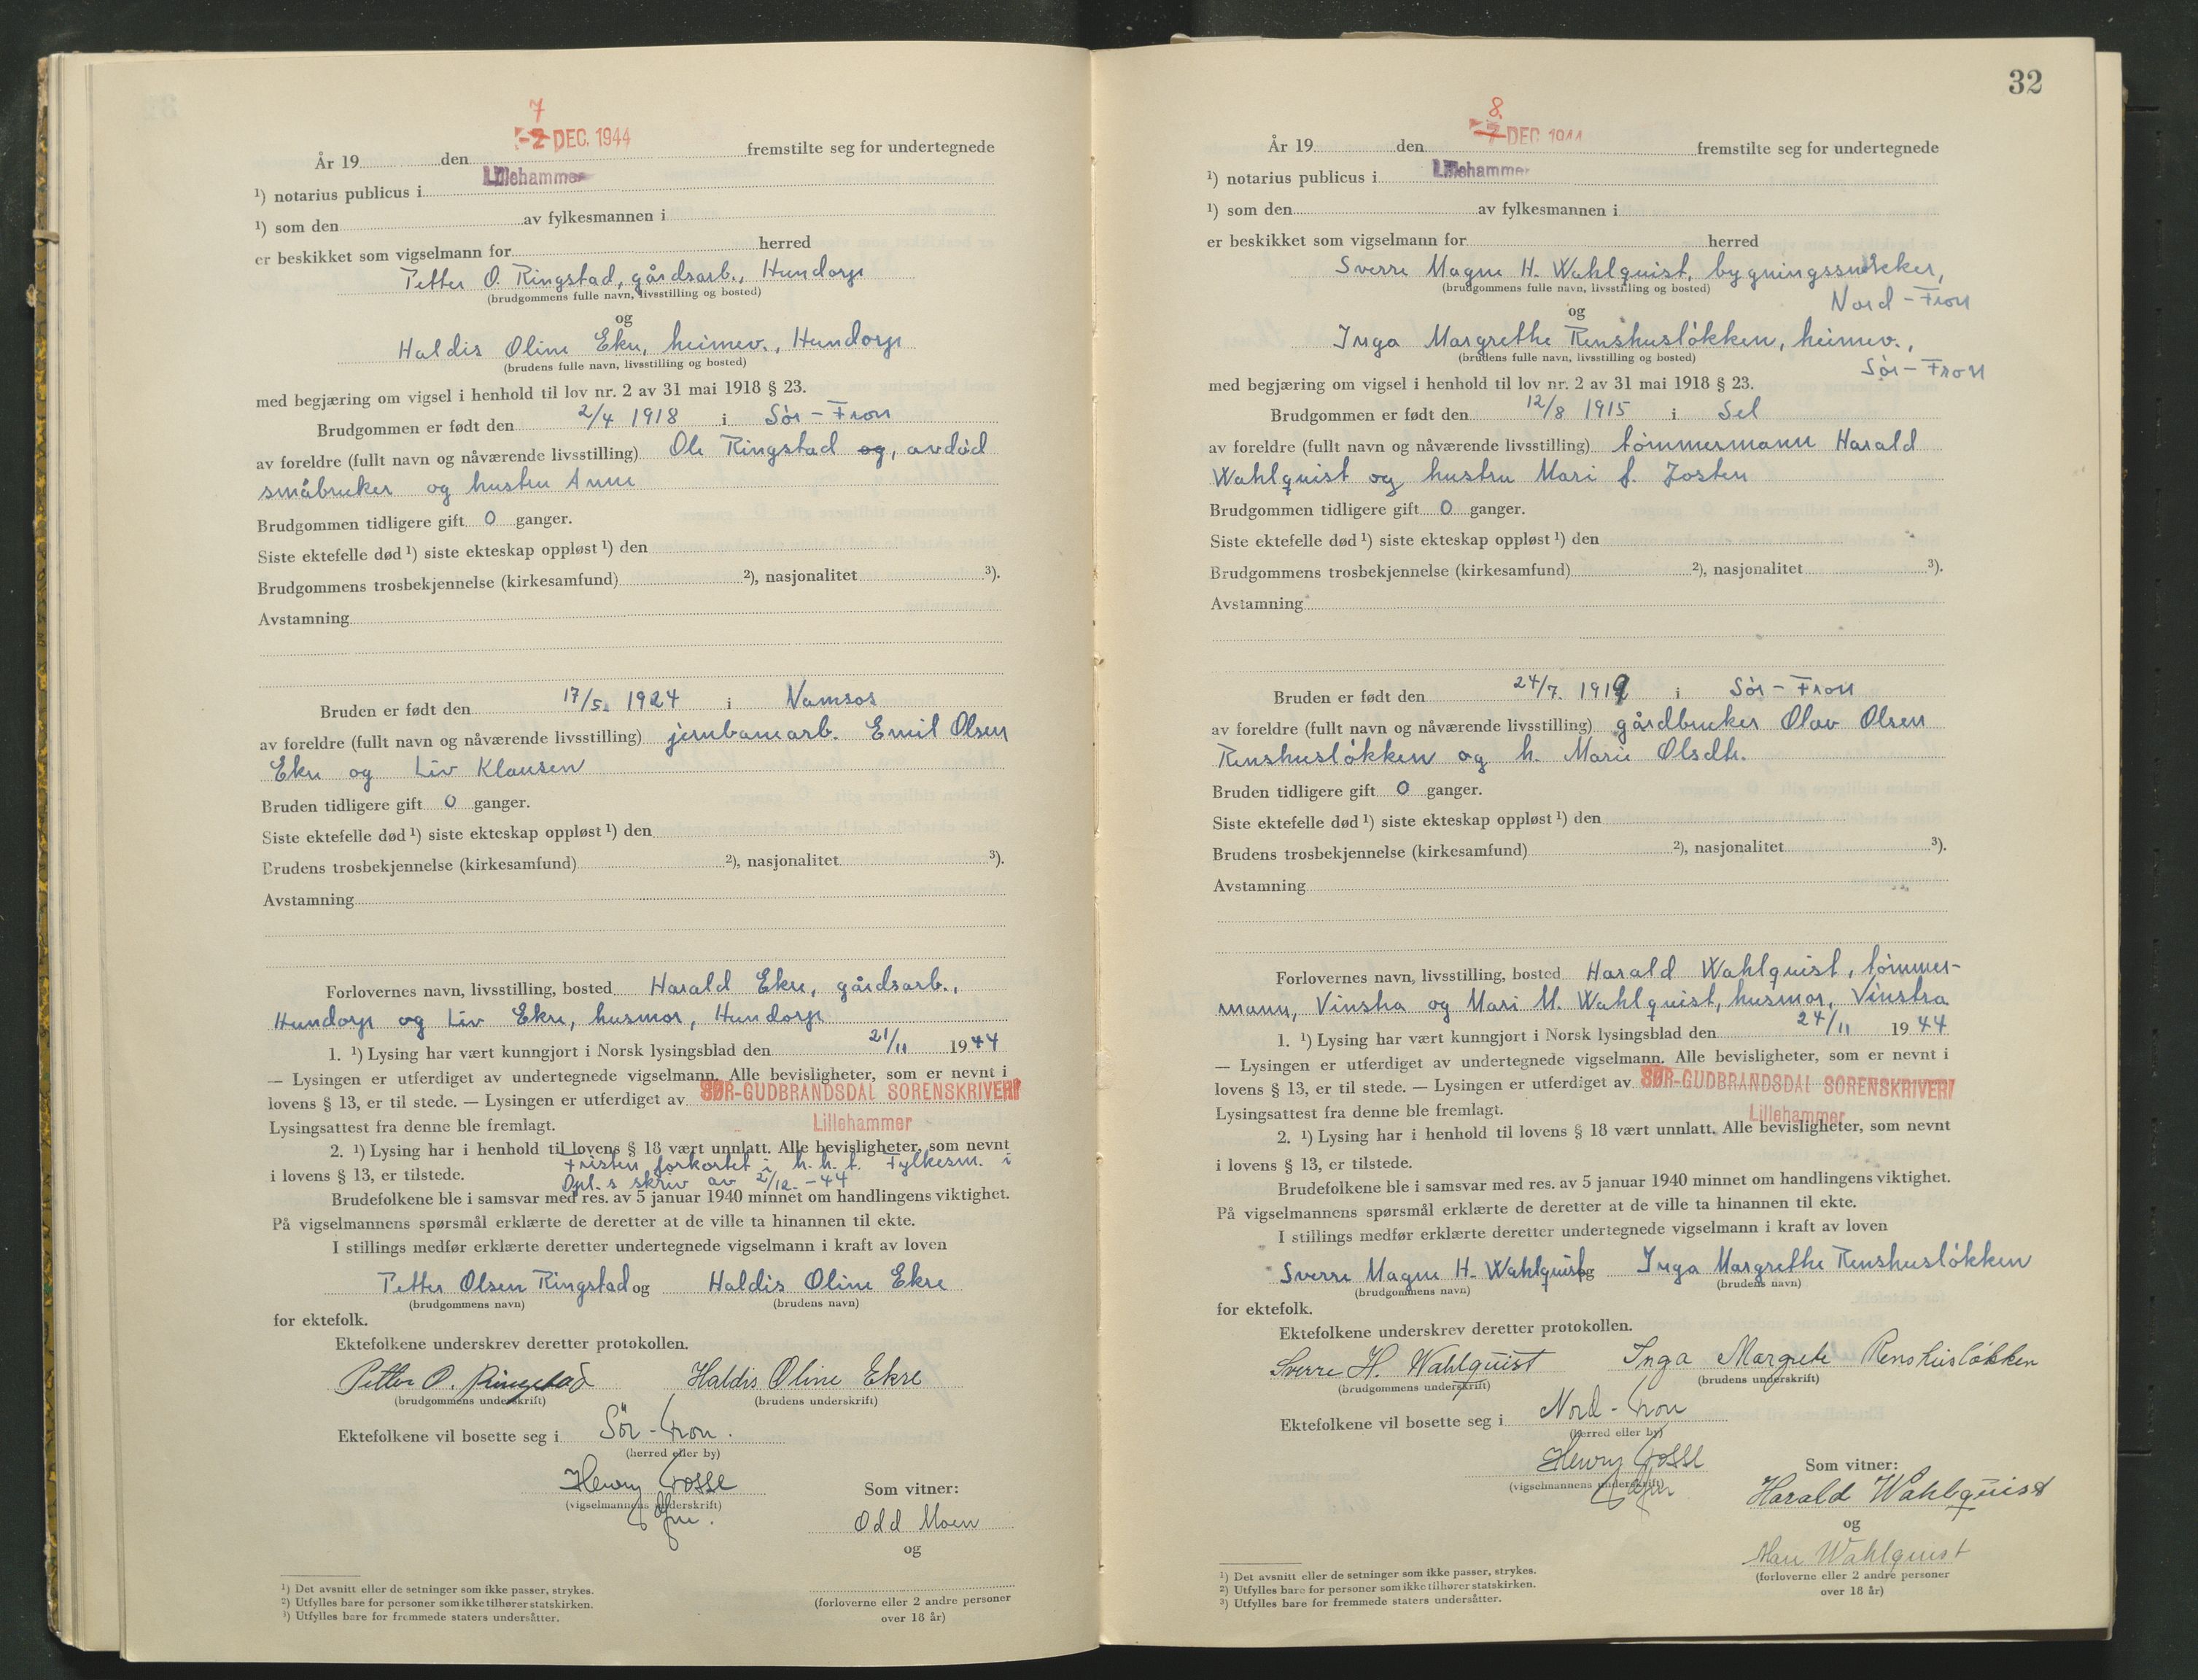 7
-2 DEC. 1944
År 19 den fremstilte seg for undertegnede
Lillehammer
¹) notarius publicus i
¹) som den av fylkesmannen i
er beskikket som vigselmann for herred
Petter O. Ringstad, gårdsarb., Hundorp
(brudgommens fulle navn, livsstilling og bosted)
og
Haldis Oline Ekre, heimev., Hundorp
(brudens fulle navn, livsstilling og bosted)
med begjæring om vigsel i henhold til lov nr. 2 av 31 mai 1918 § 23.
Brudgommen er født den 2/4 1918 i Sør-Fron
av foreldre (fullt navn og nåværende livsstilling) Ole Ringstad og, avdød
småbruker og hustru Anne
Brudgommen tidligere gift 0 ganger.
Siste ektefelle død ¹) siste ekteskap oppløst ¹) den
Brudgommens trosbekjennelse (kirkesamfund) ²), nasjonalitet ³).
Avstamning
Bruden er født den 17/5. 1924 i Namsos
av foreldre (fullt navn og nåværende livsstilling) jernbanearb. Emil Olsen
Ekre og Liv Klausen
Bruden tidligere gift 0 ganger.
Siste ektefelle død ¹) siste ekteskap oppløst ¹) den
Brudens trosbekjennelse (kirkesamfund) ²), nasjonalitet ³).
Avstamning
Forlovernes navn, livsstilling, bosted Harald Ekre, gårdsarb.,
Hundorp og Liv Ekre, husmor, Hundorp
1. ¹) Lysing har vært kunngjort i Norsk lysingsblad den 21/11 1944
— Lysingen er utferdiget av undertegnede vigselmann. Alle bevisligheter, som er nevnt i
lovens § 13, er til stede. — Lysingen er utferdiget av SØR-GUDBRANDSDAL SORENSKRIVERI
Lysingsattest fra denne ble fremlagt. Lillehammer
2. ¹) Lysing har i henhold til lovens § 18 vært unnlatt. Alle bevisligheter, som nevnt
i lovens § 13, er tilstede. Fristen forkortet i h. h. t. Fylkesm. i
Opl.s skriv av 2/12.-44
Brudefolkene ble i samsvar med res. av 5 januar 1940 minnet om handlingens viktighet.
På vigselmannens spørsmål erklærte de deretter at de ville ta hinannen til ekte.
I stillings medfør erklærte deretter undertegnede vigselmann i kraft av loven
Petter Olsen Ringstad og Haldis Oline Ekre
(brudgommens navn) (brudens navn)
for ektefolk.
Ektefolkene underskrev deretter protokollen.
Petter O. Ringstad Haldis Oline Ekre
(brudgommens underskrift) (brudens underskrift)
Ektefolkene vil bosette seg i Sør-Fron.
(herred eller by)
Henry Fosse
(vigselmannens underskrift)
Som vitner:
Odd Moen
og
(forloverne eller 2 andre personer
over 18 år)
¹) Det avsnitt eller de setninger som ikke passer, strykes.
²) Utfylles bare for personer som ikke tilhører statskirken.
³) Utfylles bare for fremmede staters undersåtter.
32
8.
-7 DEC 1944
År 19 den fremstilte seg for undertegnede
Lillehammer
¹) notarius publicus i
¹) som den av fylkesmannen i
er beskikket som vigselmann for herred
Sverre Magne H. Wahlquist, bygningssnekker,
(brudgommens fulle navn, livsstilling og bosted) Nord-Fron
og
Inga Margrethe Renshusløkken, heimev.,
(brudens fulle navn, livsstilling og bosted) Sør-Fron
med begjæring om vigsel i henhold til lov nr. 2 av 31 mai 1918 § 23.
Brudgommen er født den 12/8 1915 i Sel
av foreldre (fullt navn og nåværende livsstilling) tømmermann Harald
Wahlquist og hustru Mari f. Josten
Brudgommen tidligere gift 0 ganger.
Siste ektefelle død ¹) siste ekteskap oppløst ¹) den
Brudgommens trosbekjennelse (kirkesamfund) ²), nasjonalitet ³).
Avstamning
Bruden er født den 24/7. 1919 i Sør-Fron
av foreldre (fullt navn og nåværende livsstilling) gårdbruker Olav Olsen
Renshusløkken og h. Marie Olsdtr.
Bruden tidligere gift 0 ganger.
Siste ektefelle død ¹) siste ekteskap oppløst ¹) den
Brudens trosbekjennelse (kirkesamfund) ²), nasjonalitet ³).
Avstamning
Forlovernes navn, livsstilling, bosted Harald Wahlquist, tømmer-
mann, Vinstra og Mari M. Wahlquist, husmor, Vinstra
1. ¹) Lysing har vært kunngjort i Norsk lysingsblad den 24/11 1944
— Lysingen er utferdiget av undertegnede vigselmann. Alle bevisligheter, som er nevnt i
lovens § 13, er til stede. — Lysingen er utferdiget av SØR-GUDBRANDSDAL SORENSKRIVERI
Lysingsattest fra denne ble fremlagt. Lillehammer
2. ¹) Lysing har i henhold til lovens § 18 vært unnlatt. Alle bevisligheter, som nevnt
i lovens § 13, er tilstede.
Brudefolkene ble i samsvar med res. av 5 januar 1940 minnet om handlingens viktighet.
På vigselmannens spørsmål erklærte de deretter at de ville ta hinannen til ekte.
I stillings medfør erklærte deretter undertegnede vigselmann i kraft av loven
Sverre Magne H. Wahlquist og Inga Margrethe Renshusløkken
(brudgommens navn) (brudens navn)
for ektefolk.
Ektefolkene underskrev deretter protokollen.
Sverre H. Wahlquist Inga Margrete Renshusløkken
(brudgommens underskrift) (brudens underskrift)
Ektefolkene vil bosette seg i Nord-Fron
(herred eller by)
Henry Fosse
(vigselmannens underskrift)
Som vitner:
Harald Wahlquist
og
Mari Wahlquist
(forloverne eller 2 andre personer
over 18 år)
¹) Det avsnitt eller de setninger som ikke passer, strykes.
²) Utfylles bare for personer som ikke tilhører statskirken.
³) Utfylles bare for fremmede staters undersåtter.